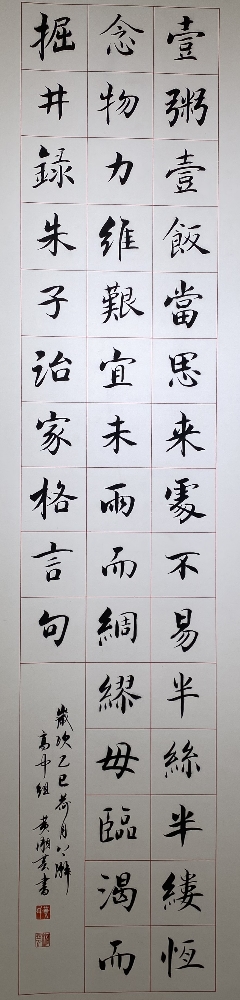 壹粥壹飯當思来處不易半絲半縷恆
念物力維艱宜未雨而綢繆毋臨渴而
掘井錄朱子治家格言句
歲次乙巳荷月上澣
高中組黃潮亮書